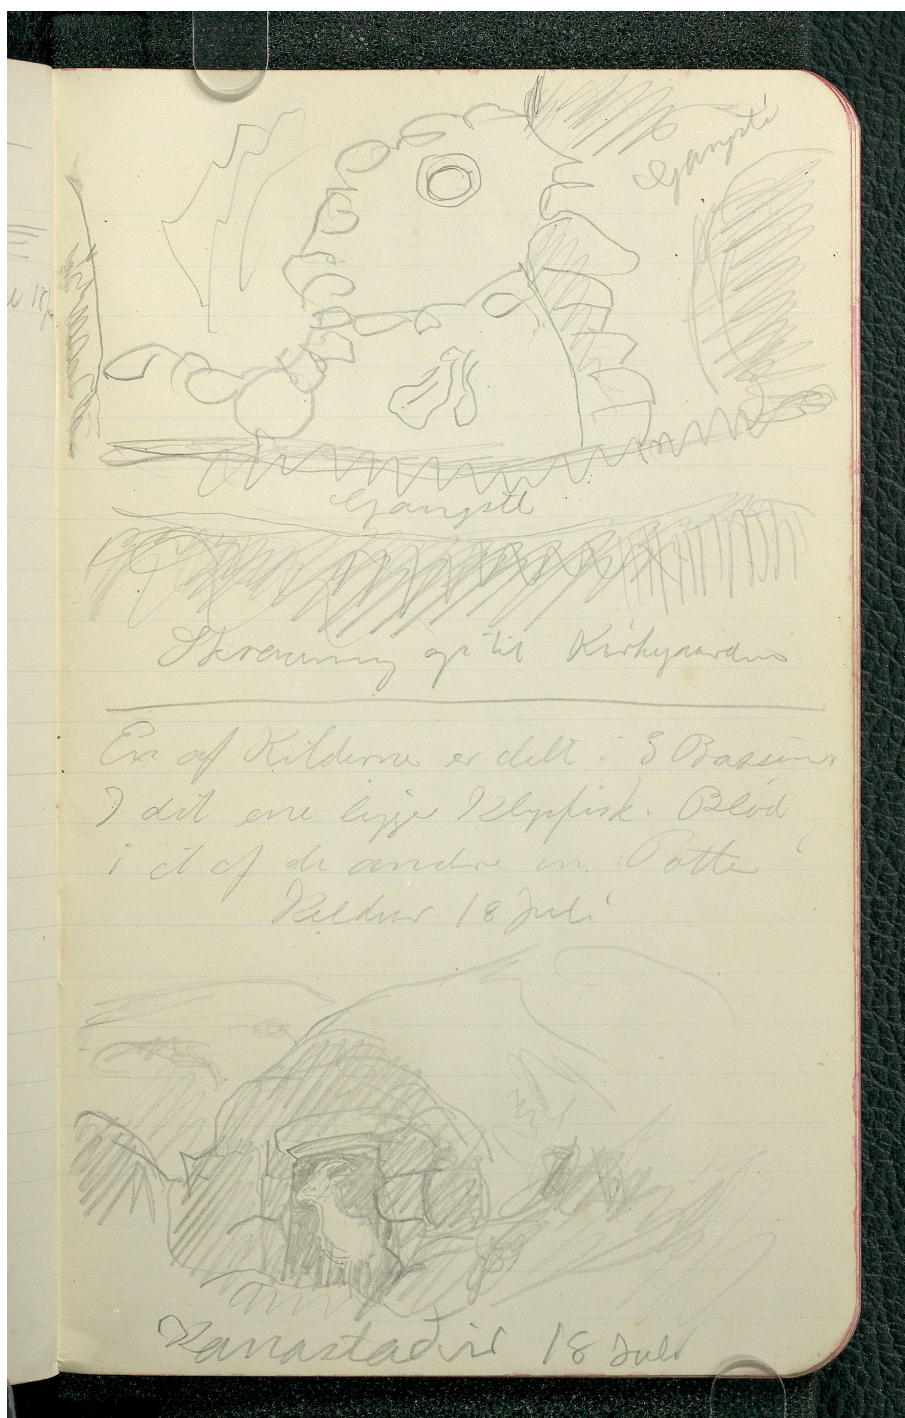 Gangsti
Gangsti
Skraaning op til Kirkegaarden
En af Kilderne er delt i 3 Bassiner
I det ene ligge Klipfisk i Blød
i et af de andre en Potte
Kilder 18 Juli
18 Juli